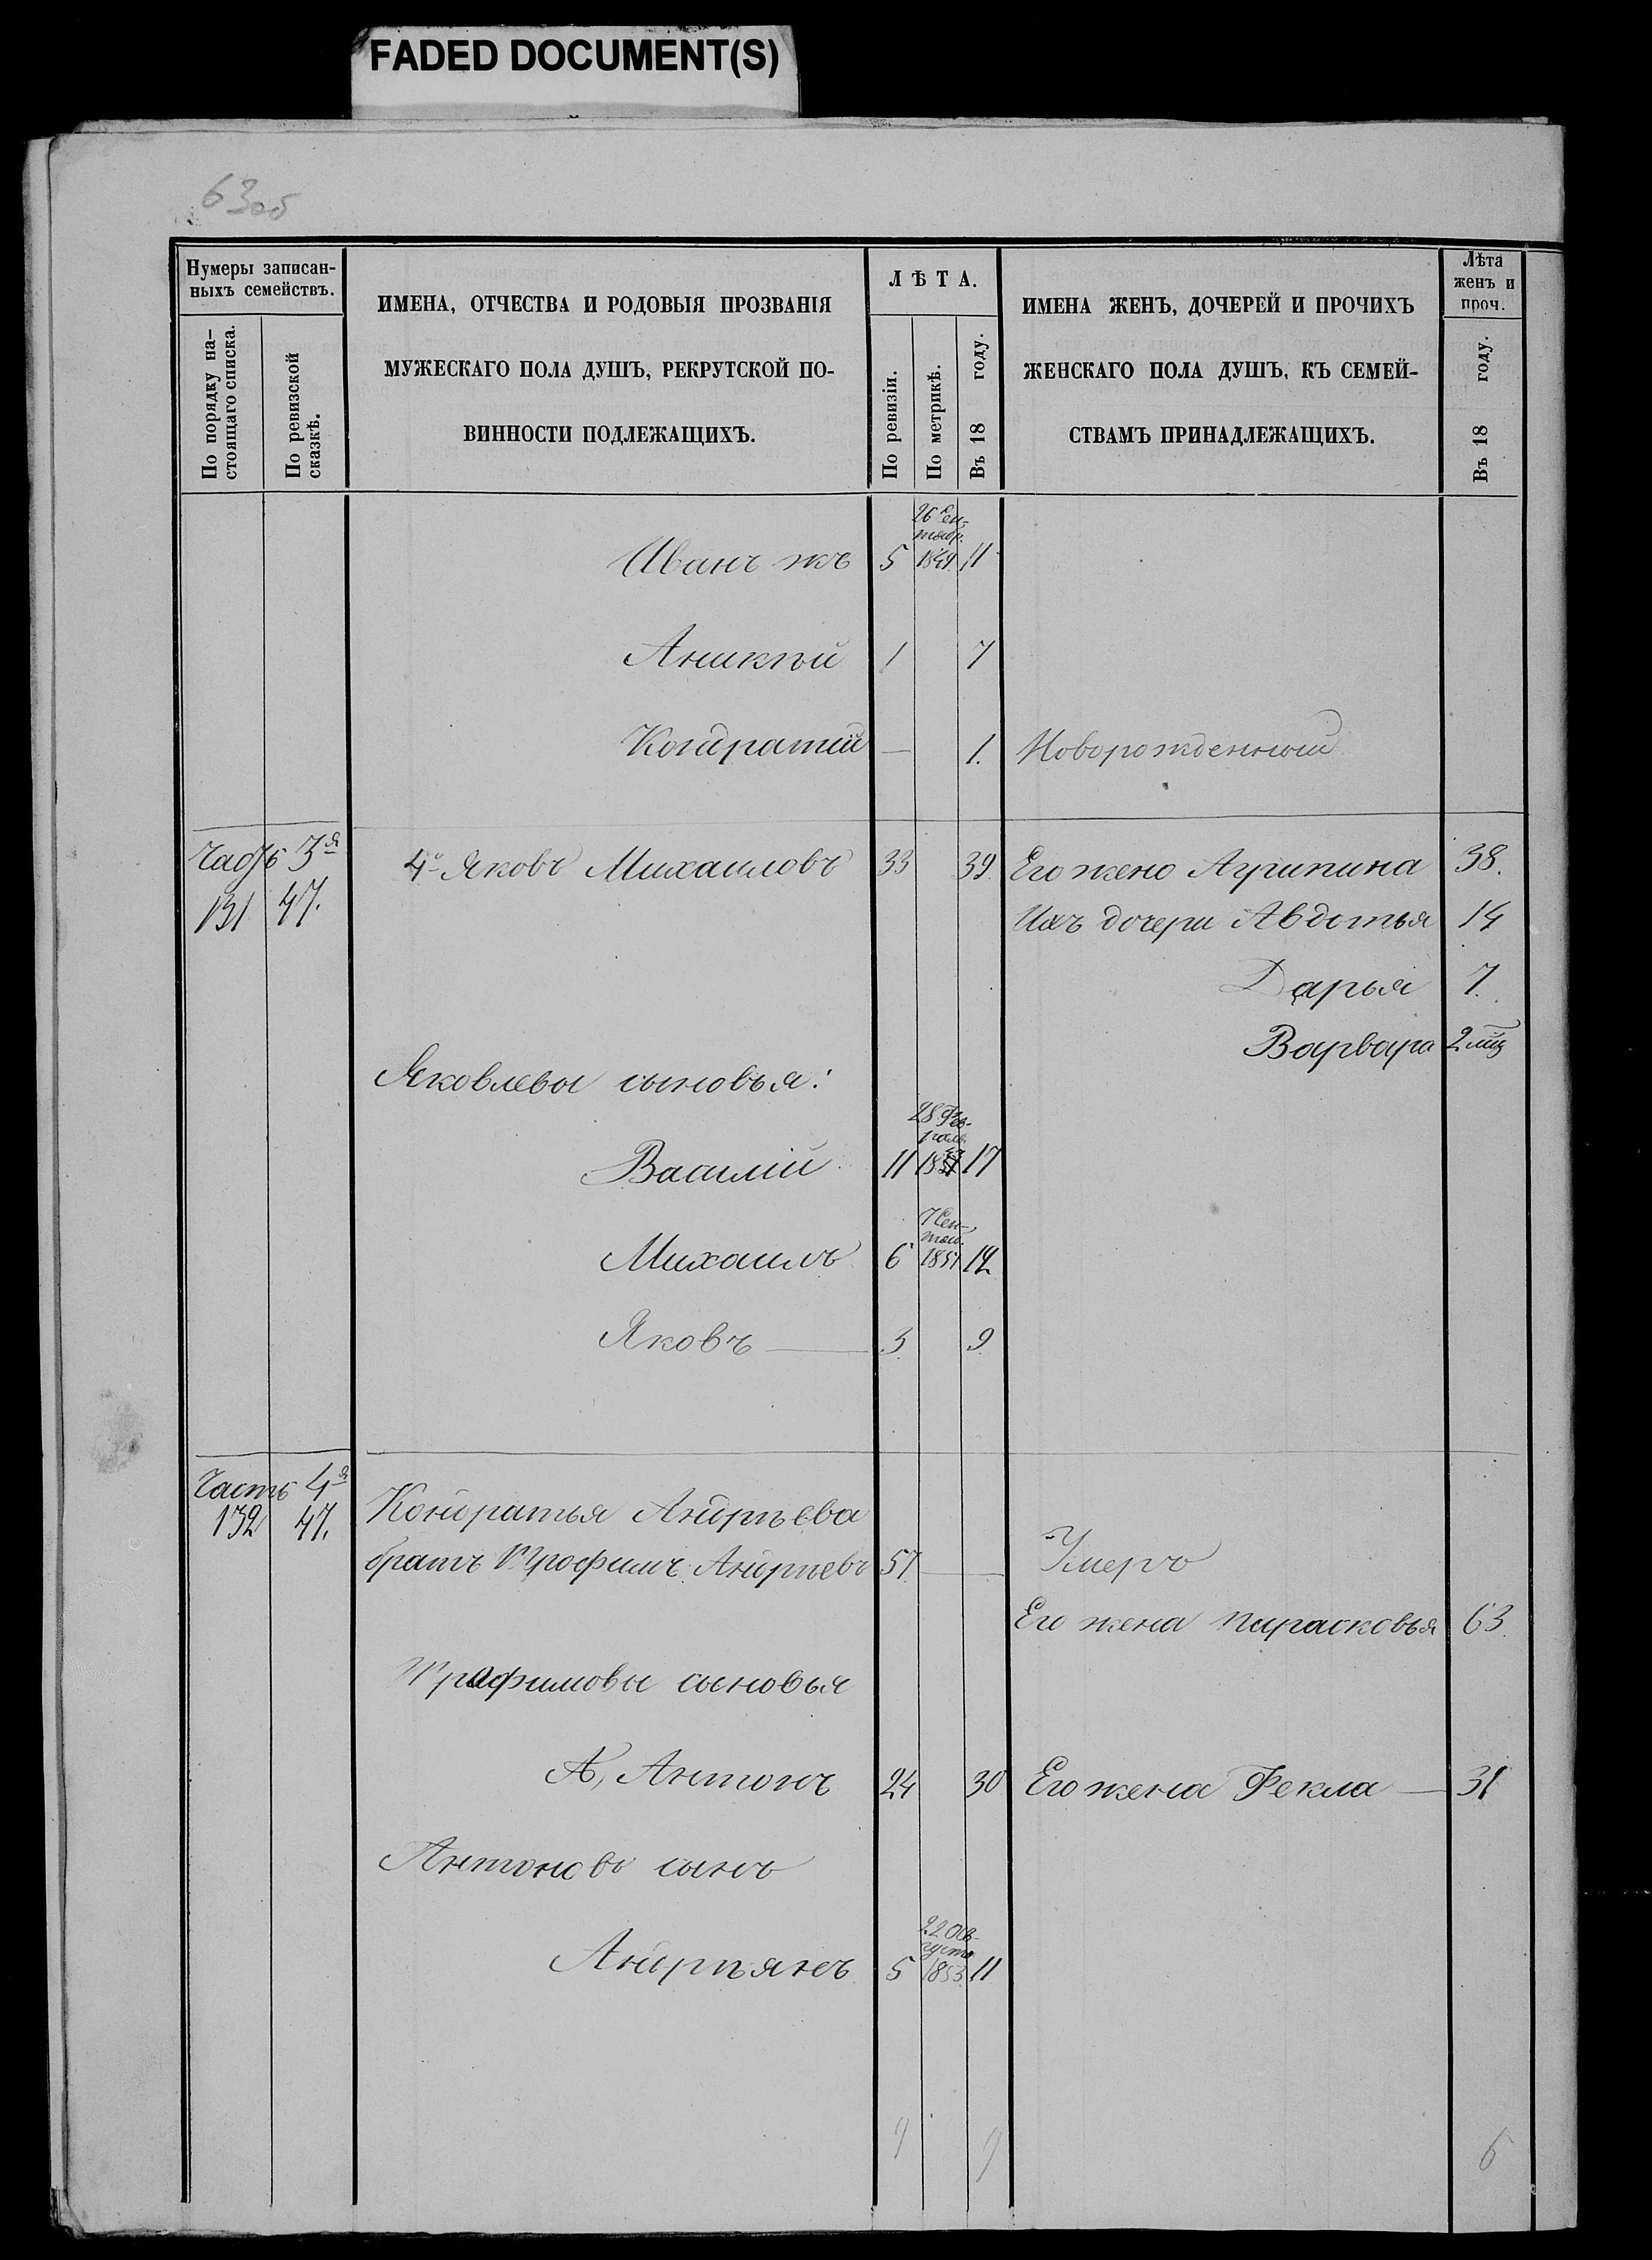 FADED DOCUMENT(S)
63об
Нумеры записан-
ныхъ семействъ.
По порядку на-
стоящаго списка.
По ревизской
сказкѣ.
ИМЕНА, ОТЧЕСТВА И РОДОВЫЯ ПРОЗВАНІЯ
МУЖЕСКАГО ПОЛА ДУШЪ, РЕКРУТСКОЙ ПО-
ВИННОСТИ ПОДЛЕЖАЩИХЪ.
ЛѢТА.
По ревизіи.
По метрикѣ.
Въ 18 году.
ИМЕНА ЖЕНЪ, ДОЧЕРЕЙ И ПРОЧИХЪ
ЖЕНСКАГО ПОЛА ДУШЪ, КЪ СЕМЕЙ-
СТВАМЪ ПРИНАДЛЕЖАЩИХЪ.
Лѣта
женъ и
проч.
Въ 18 году.
Иванъ 5 11
Аникѣй 1 7
Кондратій — 1. Новорожденный
Часть 3я
131 47. 4. Яковъ Михаиловъ 33 39 Его жена Агрипина 38.
Ихъ дочери Авдотья 14
Дарья 7.
Варвара 2 мѣ
Яковлевы сыновья:
28 Фев-
раля
Василій 11 17
7 Сен-
тяб.
Михаилъ 6 1851 12
Яковъ — 3 9
Часть 4я
132 47. Кондратья Андрѣева
братъ Трофимъ Андрѣевъ 57 — Умеръ
Его жена Парасковья 63.
Трофимовы сыновья
А, Антонъ 24 30 Его жена Фекла — 31
Антоновъ сынъ
22 Ав-
густа
Андріянъ 5 1853 11
9 9 6